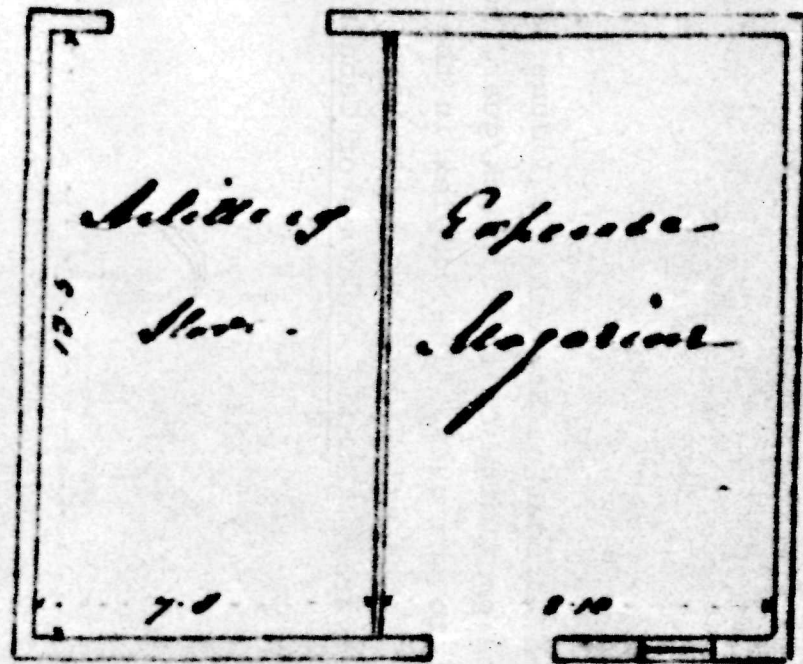 Artillery
Store.
Expense
Magazine
13.5
7.8
8.10